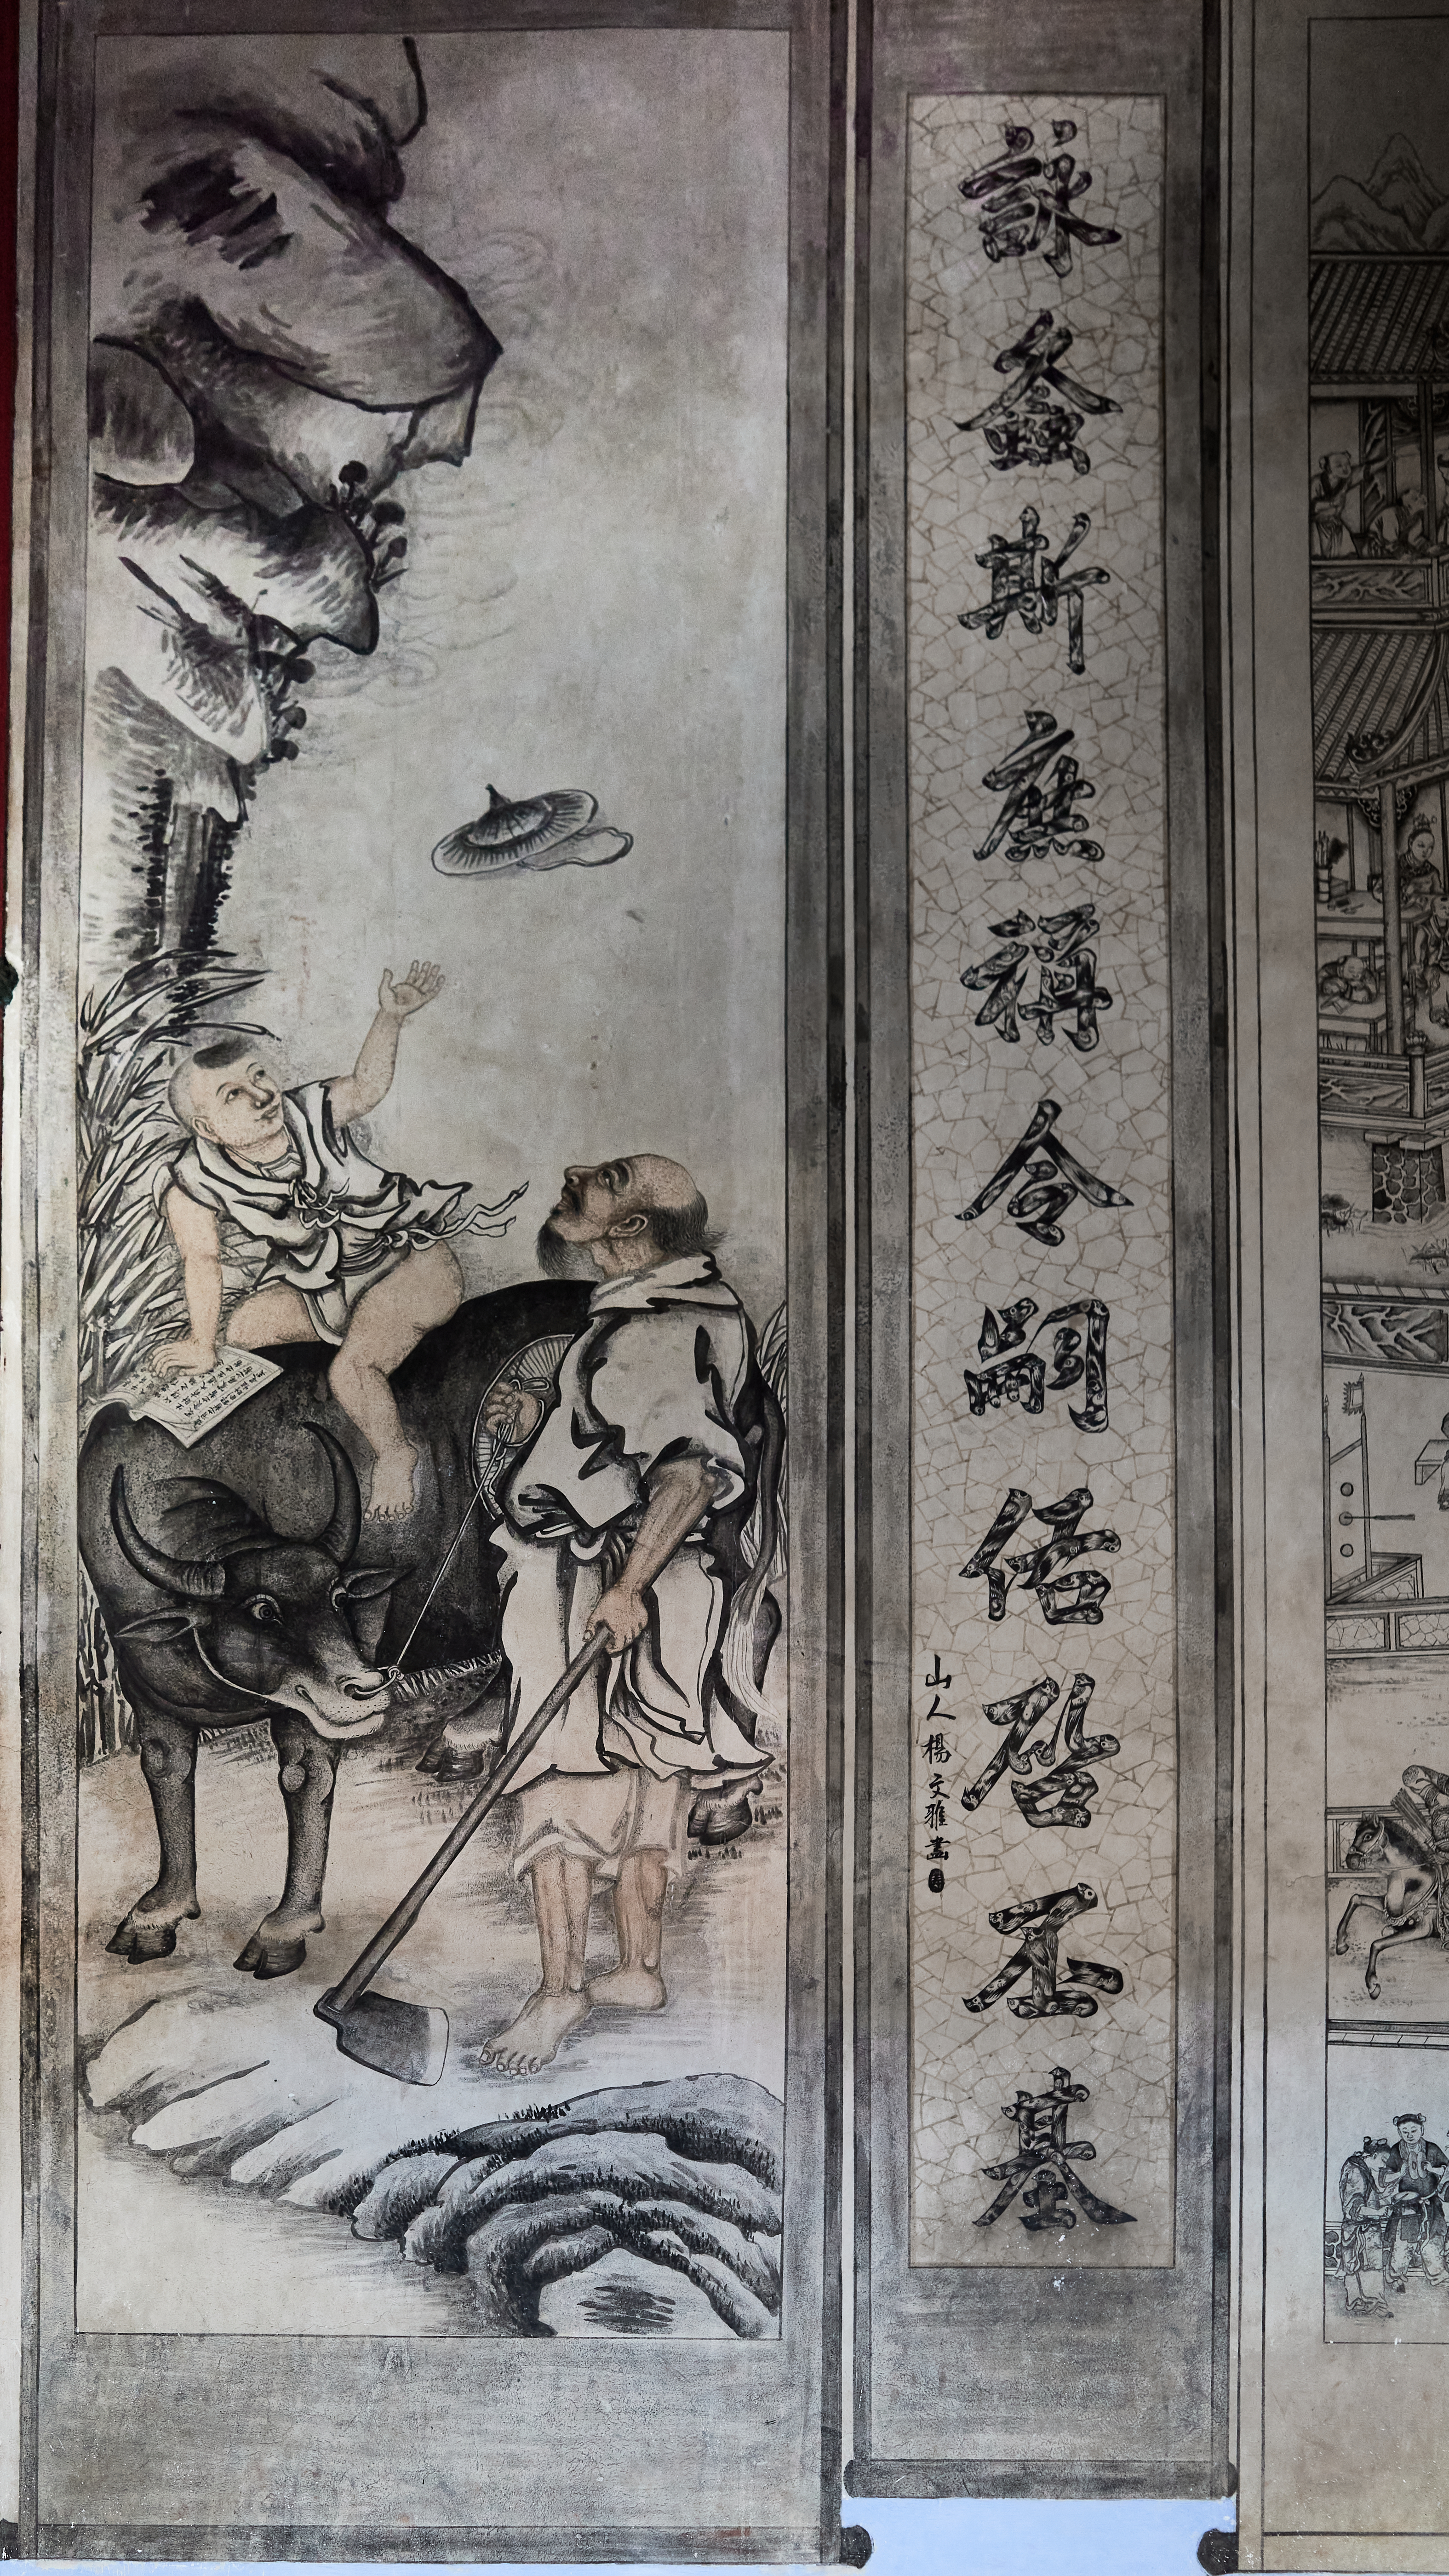 詠螽斯庶稱令嗣佑啓丕基
山人楊文雅畫